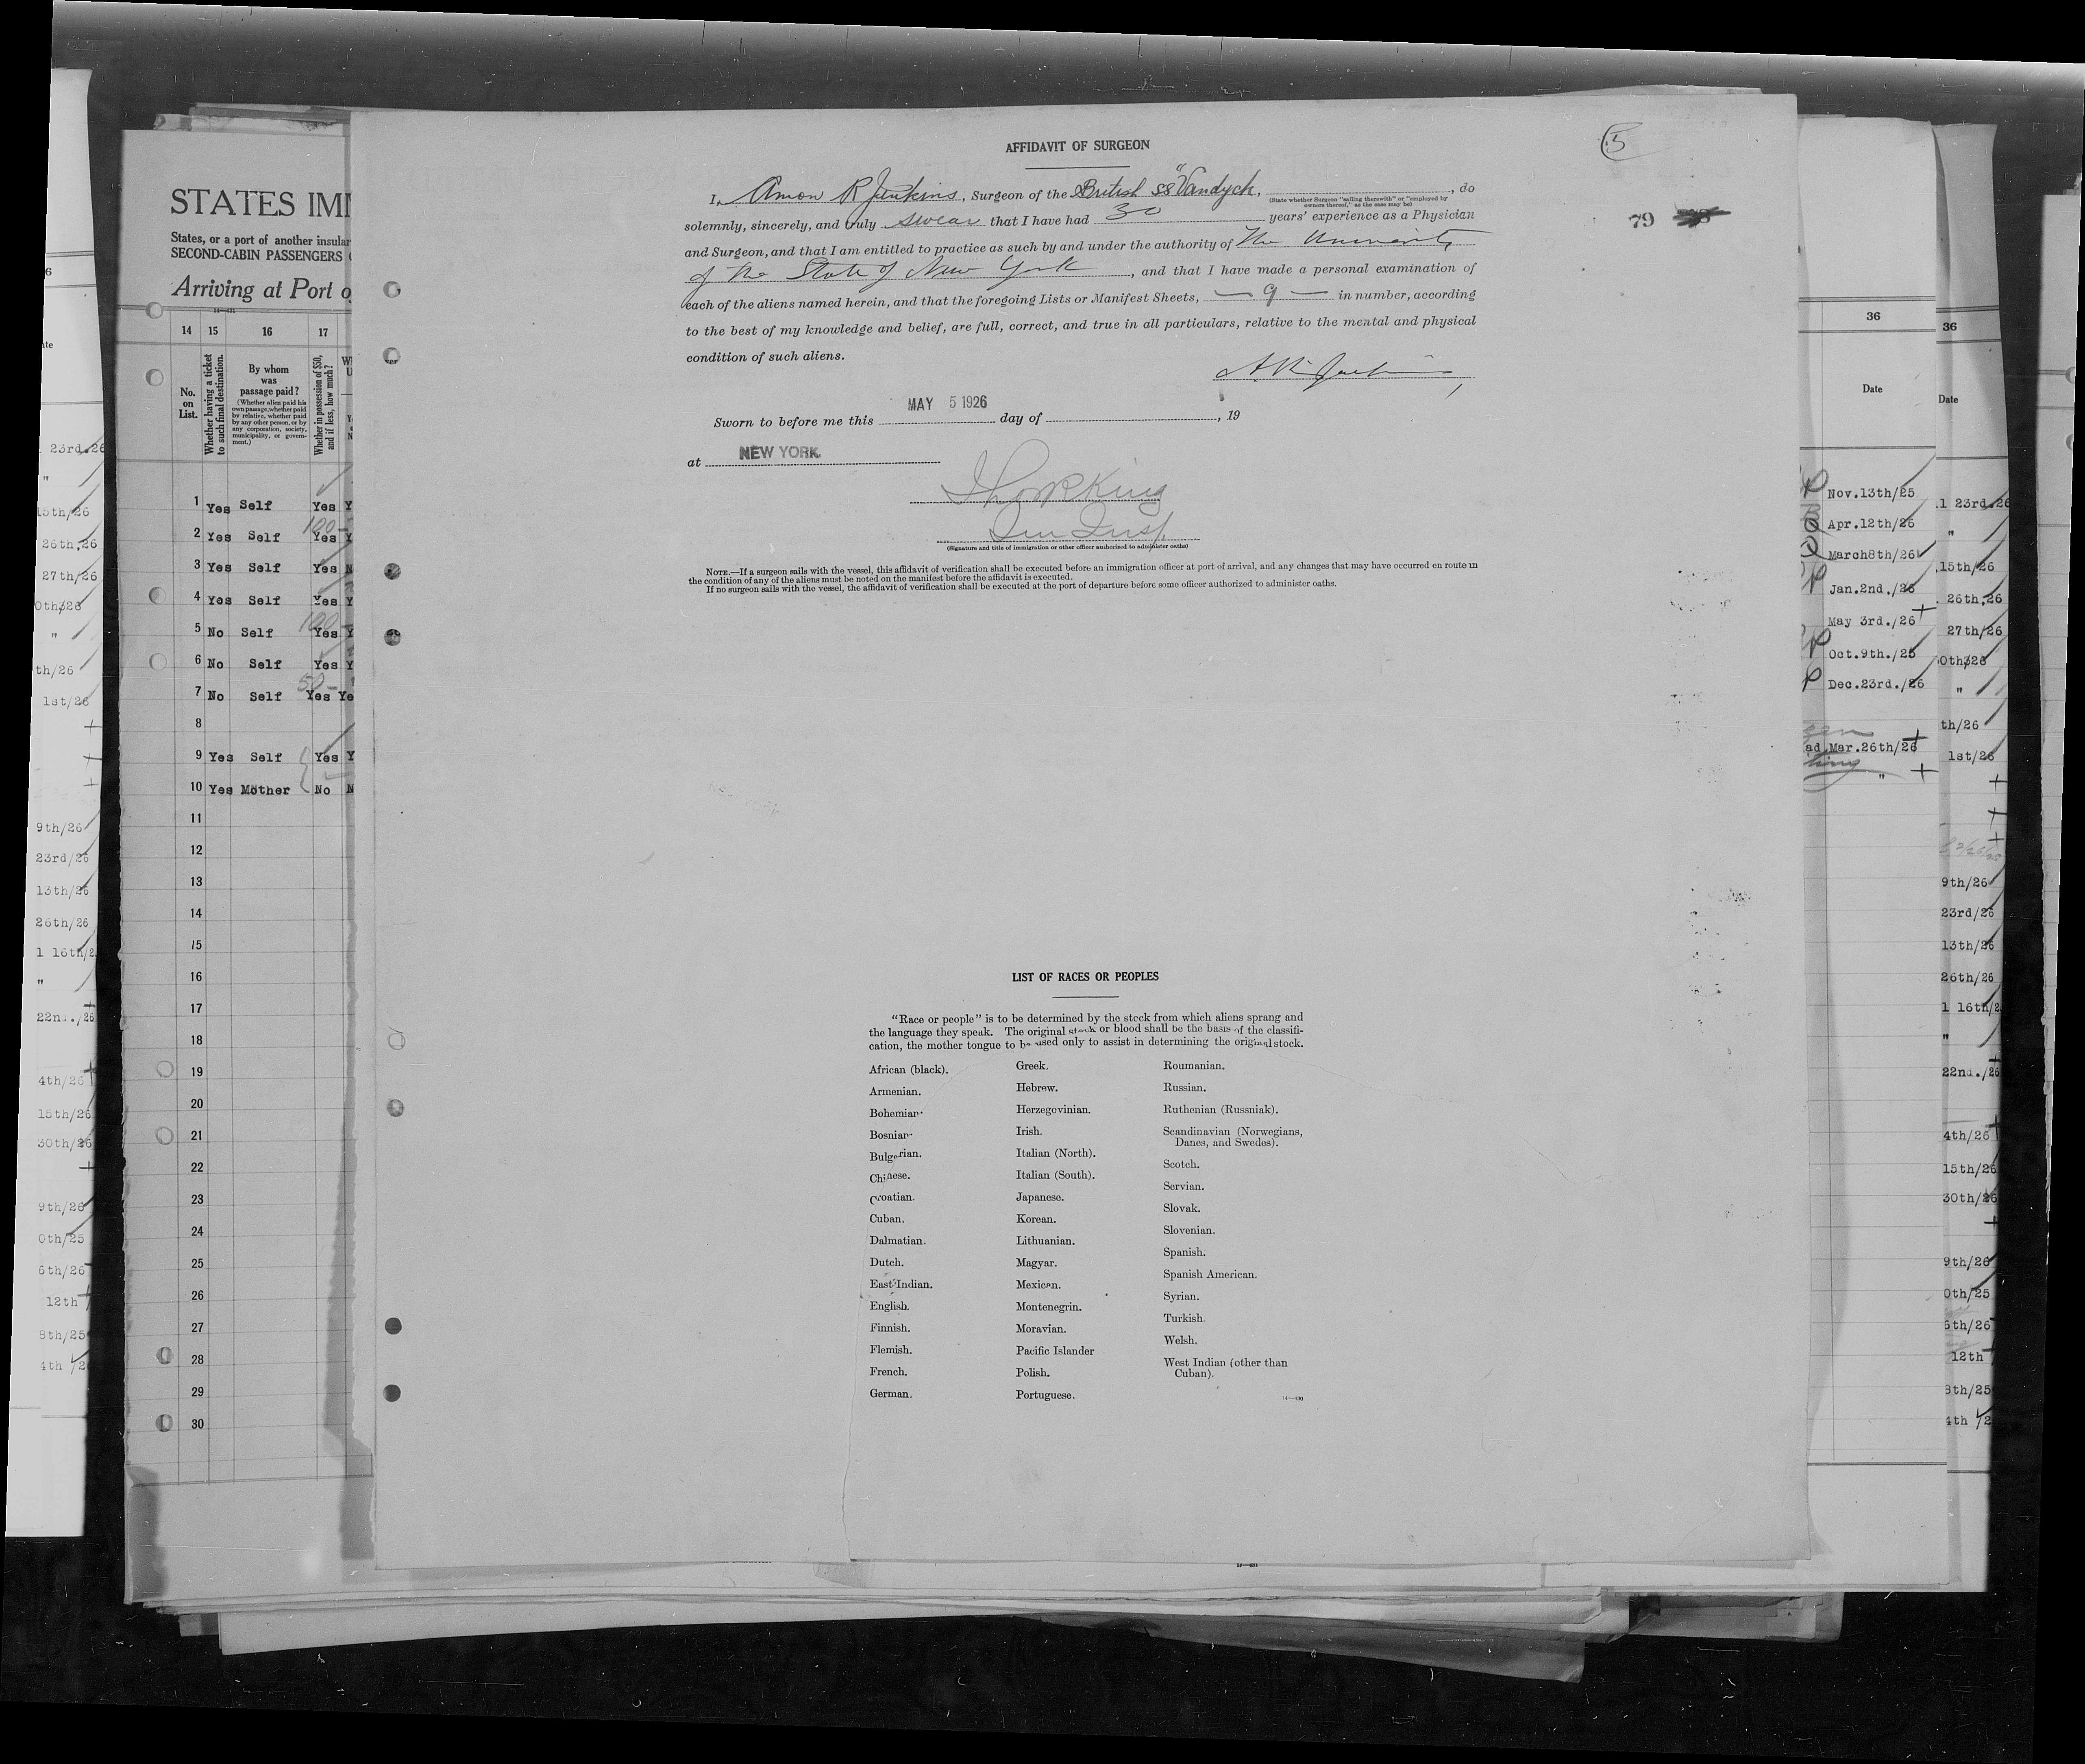 AFFIDAVIT OF SURGEON
5
I, Amon R Jenkins, Surgeon of the British SS "Vandyck, , do
(State whether Surgeon "sailing therewith" or "employed by
owners thereof," as the case may be)
solemnly, sincerely, and truly swear that I have had 30 years' experience as a Physician
79
and Surgeon, and that I am entitled to practice as such by and under the authority of The University
of the State of New York, and that I have made a personal examination of
each of the aliens named herein, and that the foregoing Lists or Manifest Sheets, — 9 — in number, according
to the best of my knowledge and belief, are full, correct, and true in all particulars, relative to the mental and physical
condition of such aliens.
A R Jenkins
Sworn to before me this MAY 5 1926 day of , 19
at NEW YORK
King
Imm Insp.
(Signature and title of immigration or other officer authorized to administer oaths)
NOTE.—If a surgeon sails with the vessel, this affidavit of verification shall be executed before an immigration officer at port of arrival, and any changes that may have occurred en route in
the condition of any of the aliens must be noted on the manifest before the affidavit is executed.
If no surgeon sails with the vessel, the affidavit of verification shall be executed at the port of departure before some officer authorized to administer oaths.
LIST OF RACES OR PEOPLES
"Race or people" is to be determined by the stock from which aliens sprang and
the language they speak. The original stock or blood shall be the basis of the classifi-
cation, the mother tongue to be used only to assist in determining the original stock.
African (black).
Armenian.
Bohemian.
Bosnian.
Bulgarian.
Chinese.
Croatian.
Cuban.
Dalmatian.
Dutch.
East Indian.
English.
Finnish.
Flemish.
French.
German.
Greek.
Hebrew.
Herzegovinian.
Irish.
Italian (North).
Italian (South).
Japanese.
Korean.
Lithuanian.
Magyar.
Mexican.
Montenegrin.
Moravian.
Pacific Islander
Polish.
Portuguese.
Roumanian.
Russian.
Ruthenian (Russniak).
Scandinavian (Norwegians,
Danes, and Swedes).
Scotch.
Servian.
Slovak.
Slovenian.
Spanish.
Spanish American.
Syrian.
Turkish.
Welsh.
West Indian (other than
Cuban).
STATES IMM
States, or a port of another insular
SECOND-CABIN PASSENGERS
Arriving at Port o
14 15 16 17
No. on List.
Whether having a ticket to such final destination.
By whom was passage paid?
(Whether alien paid his own passage, whether paid by relative, whether paid by any other person, or by any corporation, society, municipality, or government.)
Whether in possession of $50, and if less, how much?
1 Yes Self Yes Y
2 Yes Self 100- Yes Y
3 Yes Self Yes N
4 Yes Self Yes Y
5 No Self 100- Yes Y
6 No Self Yes Y
7 No Self 50- Yes Ye
8
9 Yes Self Yes Y
10 Yes Mother No N
11
12
13
14
15
16
17
18
19
20
21
22
23
24
25
26
27
28
29
30
36
Date
Nov.13th/25
Apr.12th/26
March8th/26
Jan.2nd./26
May 3rd./26
Oct.9th./25
Dec.23rd./26
ad.Mar.26th/26
"
36
Date
1 23rd.26
"
15th/26
26th,26
27th/26
"
th/26
1st/26
9th/26
23rd/26
13th/26
26th/26
1 16th/2
"
22nd./26
4th/26
15th/26
30th/26
9th/26
0th/25
6th/26
12th
8th/25
4th /2
6
23rd.26
"
15th/26
26th,26
27th/26
"
th/26
1st/26
9th/26
23rd/26
13th/26
26th/26
1 16th/2
"
22nd./26
4th/26
15th/26
30th/26
9th/26
0th/25
6th/26
12th
8th/25
4th /2